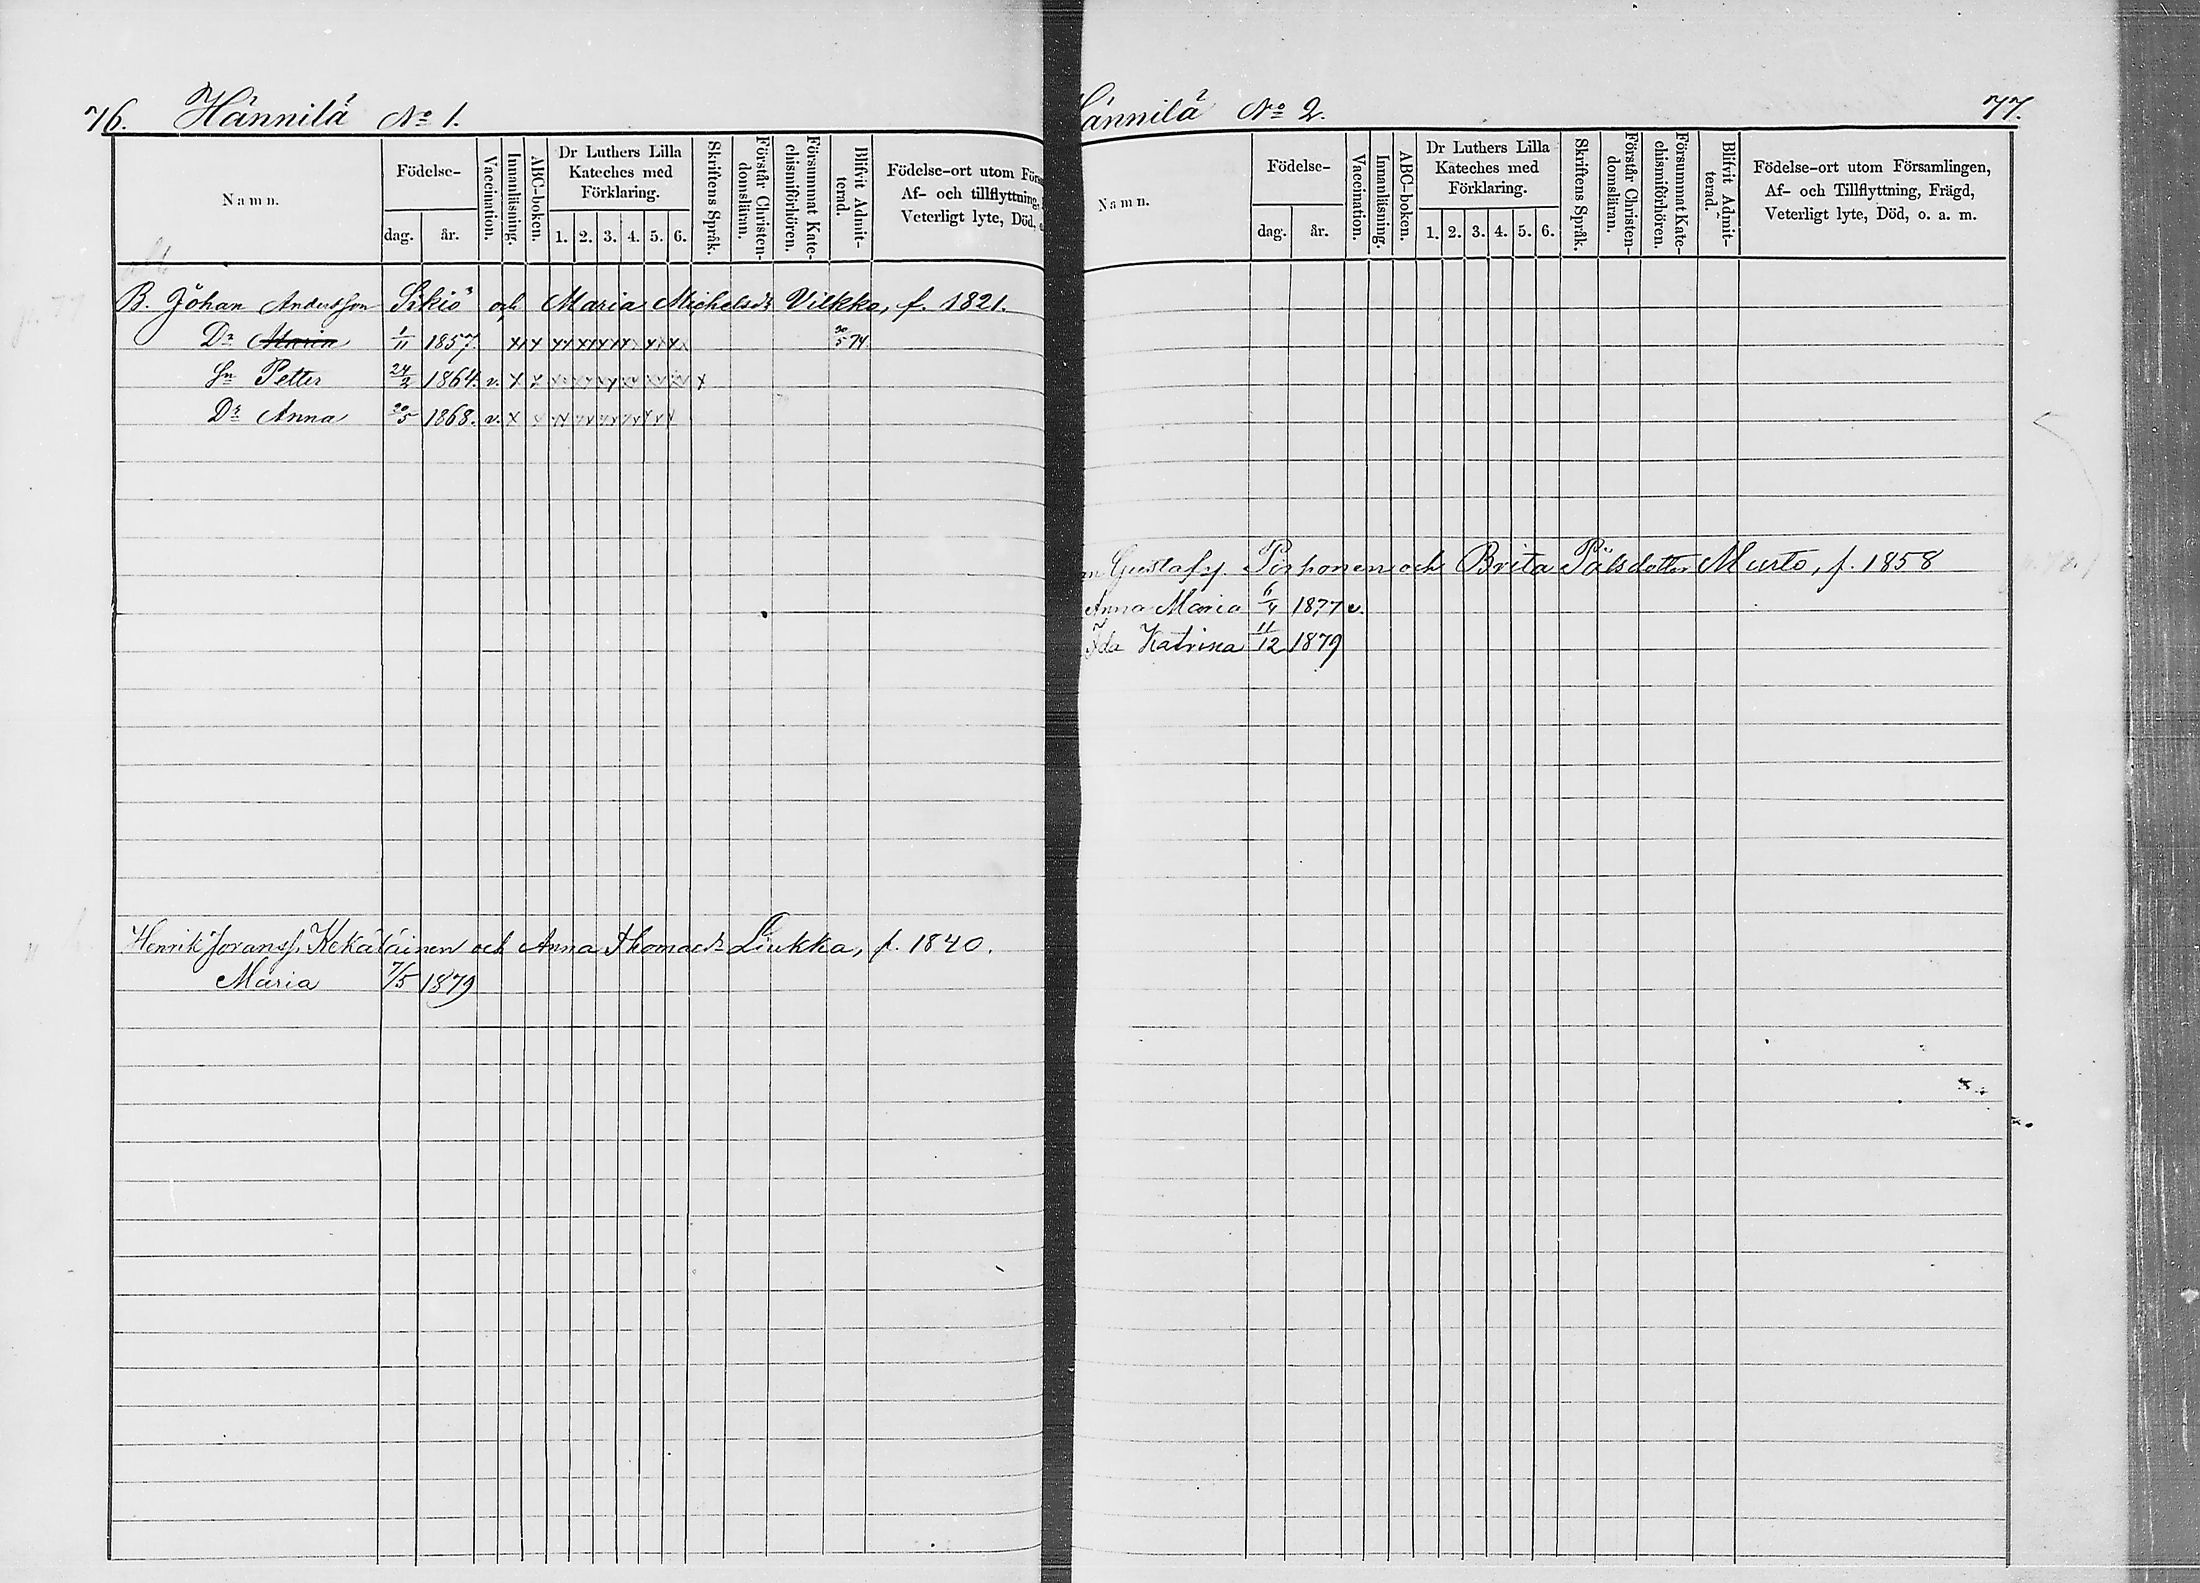 76. Hännilä No 1.
Namn.
Födelse-
dag. år.
Vaccination.
Innanläsning.
ABC-boken.
Dr Luthers Lilla
Kateches med
Förklaring.
1. 2. 3. 4. 5. 6.
Skriftens Språk.
Förstår Christen-
domsläran.
Försummat Kate-
chismiförhören.
Blifvit Admit-
terad.
Födelse-ort utom Förs
Af- och tillflyttning,
Veterligt lyte, Död,
B. Johan Andersson Sikiö och Maria Michelsdr Vilkko, f. 1821.
Dr Maria 1/11 1857. x x xx xx xx xx xx 30/5 74
Sn Petter 24/2 1864. v. x x x
Dr Anna 20/5 1868. v. x x xx xx xx xx xx
Henrik Joransf. Kekäläinen och Anna Thomasdr Liukka, f. 1840.
Maria 7/5 1879
ännilä No 2. 77.
Namn.
Födelse-
dag. år.
Vaccination.
Innanläsning.
ABC-boken.
Dr Luthers Lilla
Kateches med
Förklaring.
1. 2. 3. 4. 5. 6.
Skriftens Språk.
Förstår Christen-
domsläran.
Försummat Kate-
chismiförhören.
Blifvit Admit-
terad.
Födelse-ort utom Församlingen,
Af- och Tillflyttning, Frägd,
Veterligt lyte, Död, o. a. m.
Gustafsf. Pirhonen och Brita Pålsdotter Musto, f. 1858
Anna Maria 11/4 1877 v.
Ida Katrina 11/12 1879